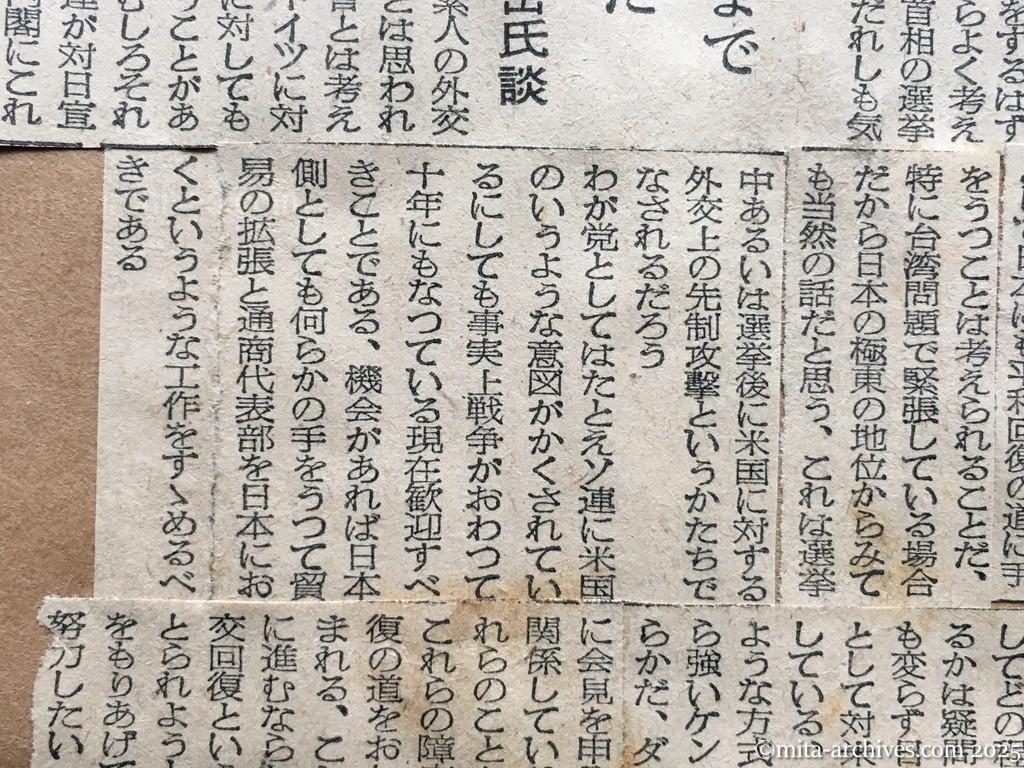 をするはず
らよく考え
首相の選挙
だれしも気
まで
た
氏談
素人の外交
とは思われ
者とは考え
ドイツに対
に対しても
うことがあ
むしろそれ
連が対日宣
内閣にこれ
平和回復の道に手
をうつことは考えられることだ、
特に台湾問題で緊張している場合
だから日本の極東の地位からみて
も当然の話だと思う、これは選挙
中あるいは選挙後に米国に対する
外交上の先制攻撃というかたちで
なされるだろう
わが党としてはたとえソ連に米国
のいうような意図がかくされてい
るにしても事実上戦争がおわつて
十年にもなつている現在歓迎すべ
きことである、機会があれば日本
側としても何らかの手をうつて貿
易の拡張と通商代表部を日本にお
くというような工作をすゝめるべ
きである
してどの程
るかは疑問
も変らず日
として対米
している
ような方式
ら強いケン
らかだ、ダ
に会見を申
関係してい
れらのこと
これらの障
復の道をお
まれる、こ
に進むなら
交回復とい
とられよう
をもりあげて
努力したい
©mita-archives.com 2025